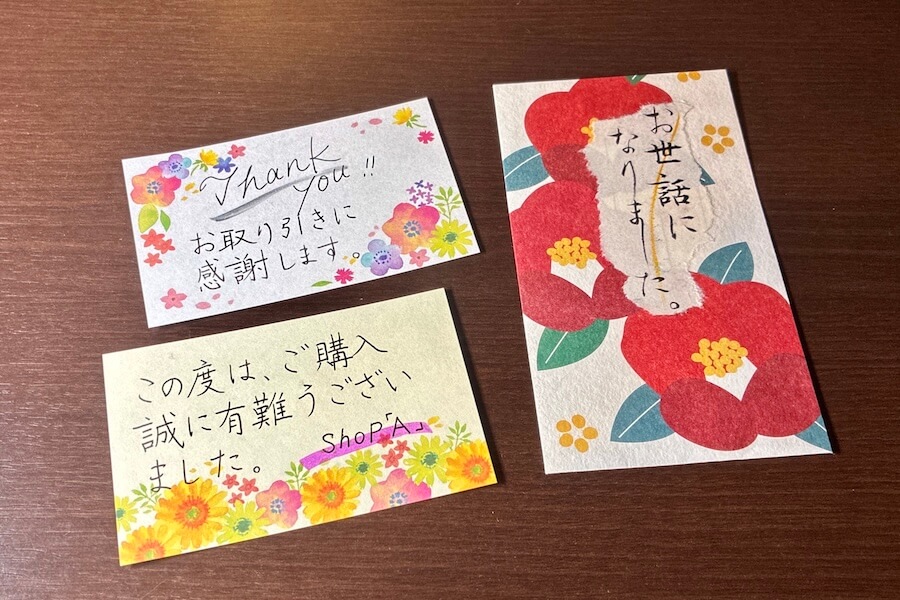 Thank
You!!
お取り引きに
感謝します。
この度は、ご購入
誠に有難うござい
ました。
Shop「A」
お世話に
なりました。